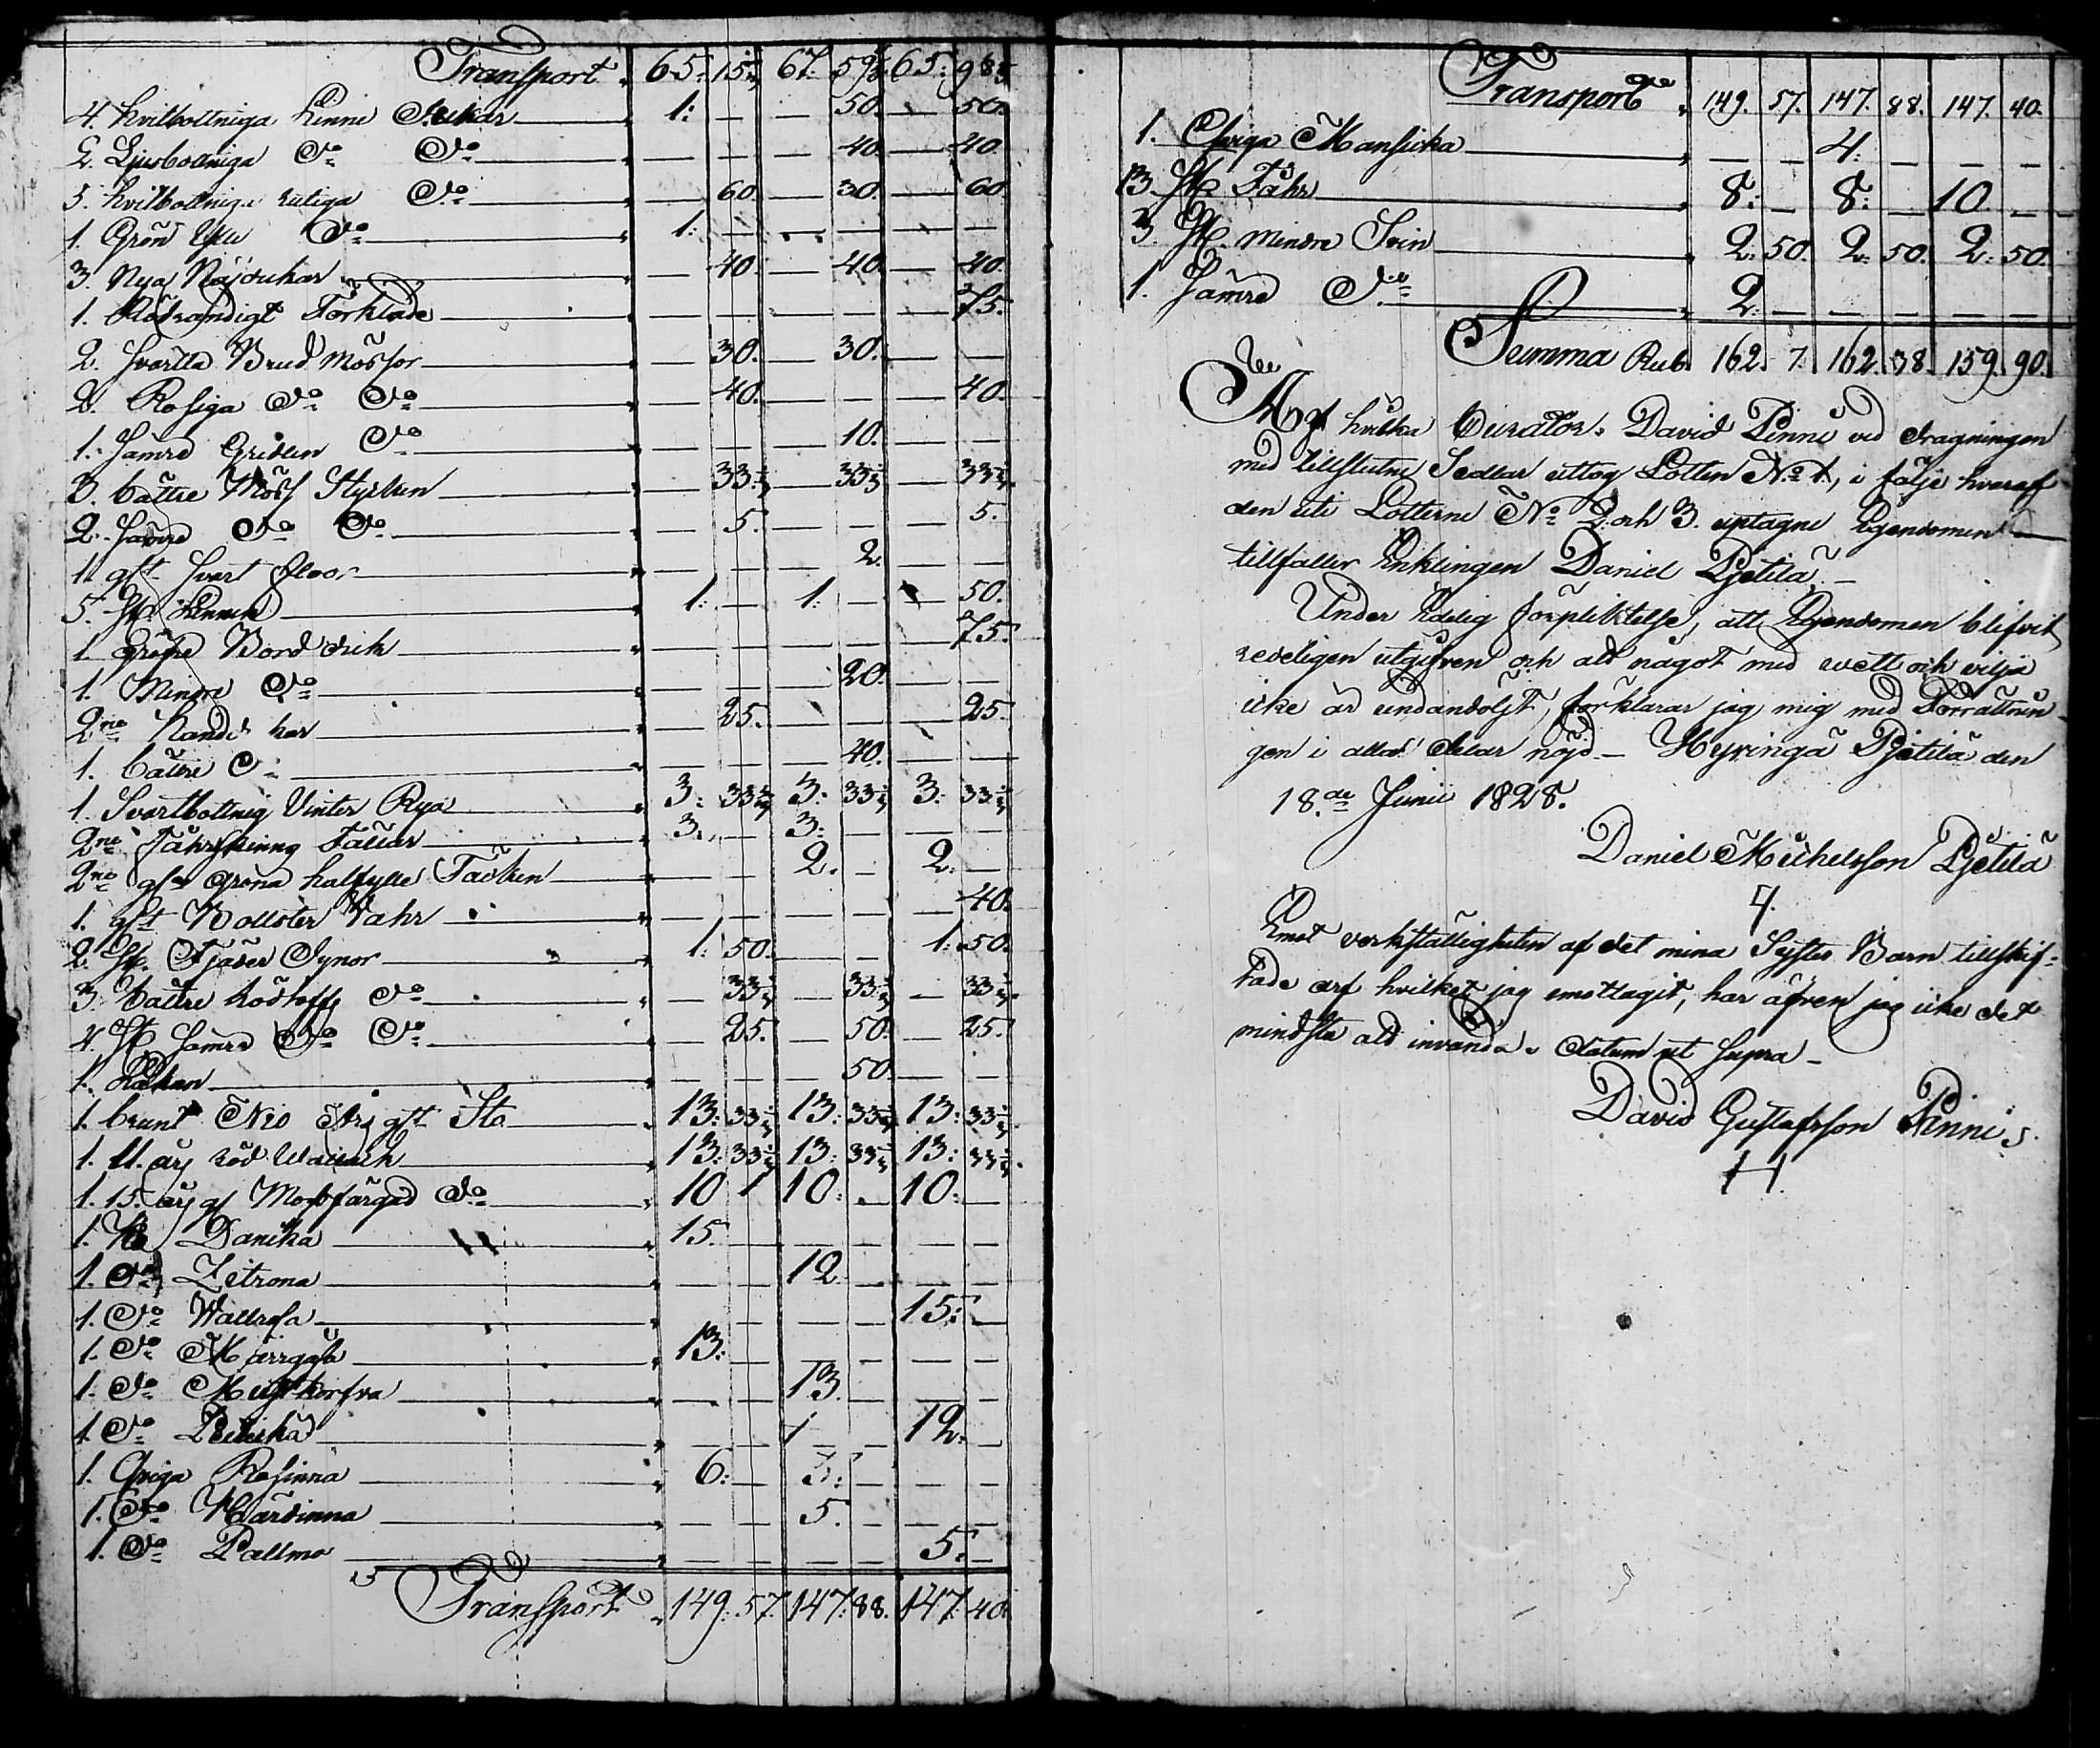 Transport 65. 15 67. 59 65. 98
4. hvitbottniga Linne Dukar 1: — — 50. — 50.
2. Ljusbottniga Do Do — — — 40. — 40.
5. hvitbottniga rutiga Do — 60. — 30. — 60.
1. Grön Do 1: — — — — —
3. Nya Näsdukar — 40. — 40. — 40.
1. Rödrandigt Förkläde — — — — — 75.
2. Svartta Brud Mössor — 30. — 30. — —
2. Rosiga Do Do — 40. — — — 40.
1. Sämre Gridlin Do — — — 10. — —
3. bättre Möss Stycken — 33⅓ — 33⅓ — 33⅓.
2. Sämre Do Do — 5. — — — 5.
1. gt Svart floor — — — 2. — —
5. St. 1: — 1: — — 50.
1. Gröfre Bord duk — — — — — 75.
1. Mindre Do — — — 20. — —
2ne Handd har — 25. — — — 25.
1. bättre Do — — — 40. — —
1. Svartbottnig Vinter Rya 3: 33⅓ 3: 33⅓ 3: 33⅓
2ne Fåhrskinns Fällar 3. — 3: — — —
2ne gla gröna halfylle Täcken — — 2. — 2. —
1. glt Bollster Vahr — — — — — 40.
2. St. Fjäder Dynor 1: 50. — — 1: 50.
3. bättre Do — 33⅓ — 33⅓ — 33⅓.
4. St Sämre Do Do — 25. — 50. — 25.
1. Lakan — — — 50. — —
1. brunt Nio Årj glt Sto 13: 33⅓ 13: 33⅓ 13: 33⅓.
1. 11. årj röd Wallack 13: 33⅓ 13: 33⅓ 13: 33⅓.
1. 15. årj gl Mossfärgad Do 10 10: — 10: —
1. Ko Danika 15. — — — — —
1. Do Zitrona — — 12. — — —
1. Do Wallrosa — — — — 15: —
1. Do Mansgåfa 13: — — — — —
1. Do Mustkorfva — — 13. — — —
1. Do — — — — 12. —
1. Qviga Rosinna 6: — 5: — — —
1. Do Wärdinna — — 5. — — —
1. Do Pallmo — — — — 5. —
Transport 149. 57. 147. 88. 147. 40.
Transport 149. 57. 147. 88. 147. 40.
1. Qviga Mansicka — — 4. — — —
13. St. Fåhr 8. — 8. — 10. —
3. St. mindre Svin 2. 50. 2. 50. 2. 50.
1. Sämre Do 2. — — — — —
Summa Rub. 162. 7. 162. 38. 159. 90.
Af hvilka Curator David Pinni vid dragningen
med tillslutne Sedlar uttog Lotten No 1., i följe hvaraf
den uti Lotterne No 2. och 3. uptagne Egendomen
tillfaller Enklingen Daniel Pjetilä. —
Under Edelig förpliktelse, att Egendomen blifvit
redeligen utgifven och att något med wett och vilja
icke är undandoljt, förklarar jag mig med Förrättnin-
gen i alla delar nöjd — Hyvingä Pjetilä den
18.de Junii 1828.
Daniel Michelsson Pjetilä
Emot verkställigheten af det mina Syster Barn tillskif-
tade arf hvilket jag emottagit, har äfven jag icke det
mindsta att invända. Datum ut supra —
David Gustafsson Pinni